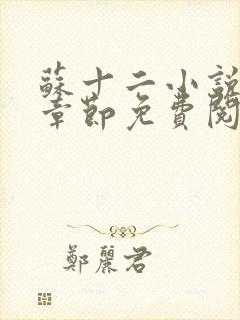 蘇十二小說
章節免費閱
鄭麗君